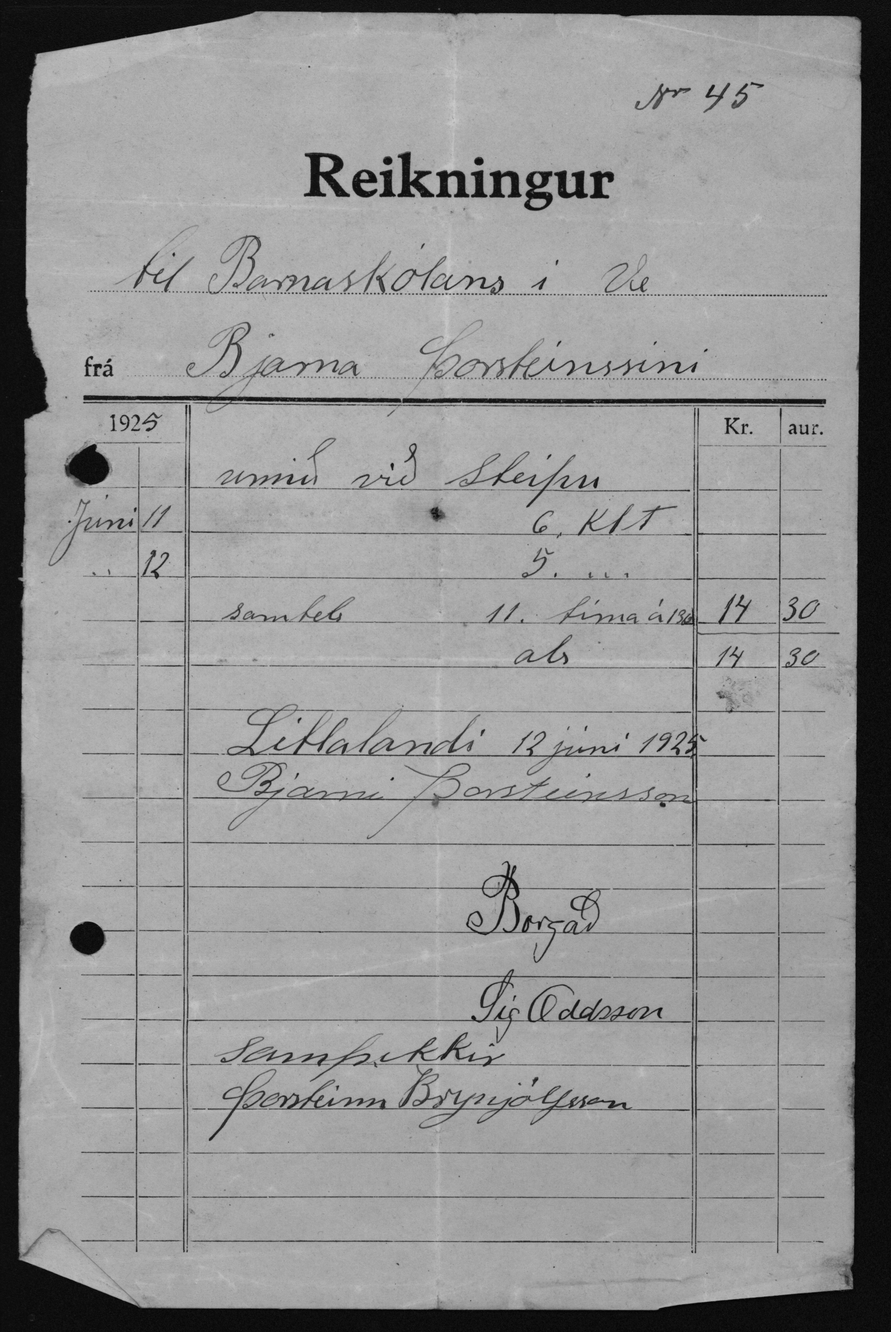 Nr 45
Reikningur
til Barnaskólans i Ve
frá Bjarna Þorsteinssini
1925 Kr. aur.
unnið við Steipu
Júni 11 6. Klt
.. 12 5. ...
samtels 11. tíma á 130 14 30
als 14 30
Litlalandi 12 júni 1925
Bjarni Þorsteinsson
Borgað
Sig Oddsson
Samþikkir
Þorsteinn Brynjólfsson